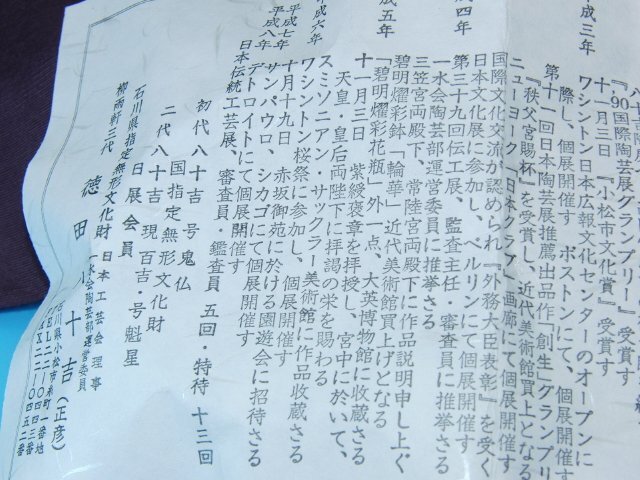 '90国際陶芸展グランプリー』受賞す
十一月三日 『小松市文化賞』受賞す
成三年
ワシントン日本広報文化センターのオープンに
際し、個展開催す ボストンにて、個展開催す
第十一回日本陶芸展推薦出品作「創生」グランプリ
『秩父宮賜杯』を受賞し、近代美術館買上となる
ニューヨーク「日本クラブ」画廊にて個展開催す
国際文化交流が認められ『外務大臣表彰』を受く
成四年
日本文化展に参加し、ベルリンにて個展開催す
第三十九回伝工展、監査主任・審査員に推挙さる
一水会陶芸部運営委員に推挙さる
三笠宮両殿下、常陸宮両殿下に作品説明申し上ぐ
碧明燿彩鉢「輪華」近代美術館買上げとなる
成五年
「碧明燿彩花瓶」外一点、大英博物館に収蔵さる
十一月三日 紫綬褒章を拝授し、宮中に於いて、
天皇・皇后両陛下に拝謁の栄を賜わる
成六年
スミソニアン・サックラー美術館に作品収蔵さる
ワシントン桜祭に参加し、個展開催す
十月十九日 赤坂御苑に於ける園遊会に招待さる
平成七年
サンパウロ、シカゴにて個展開催す
平成八年
デトロイトにて個展開催す
日本伝統工芸展、審査員・鑑査員 五回・特待 十三回
初代八十吉 号鬼仏
国指定無形文化財
二代八十吉 現百吉・号魁星
日展会員
石川県指定無形文化財
柳雨軒三代 徳田
十吉(正彦)
日本工芸会理事
一水会陶芸部運営委員
石川県小松市糸町一番地